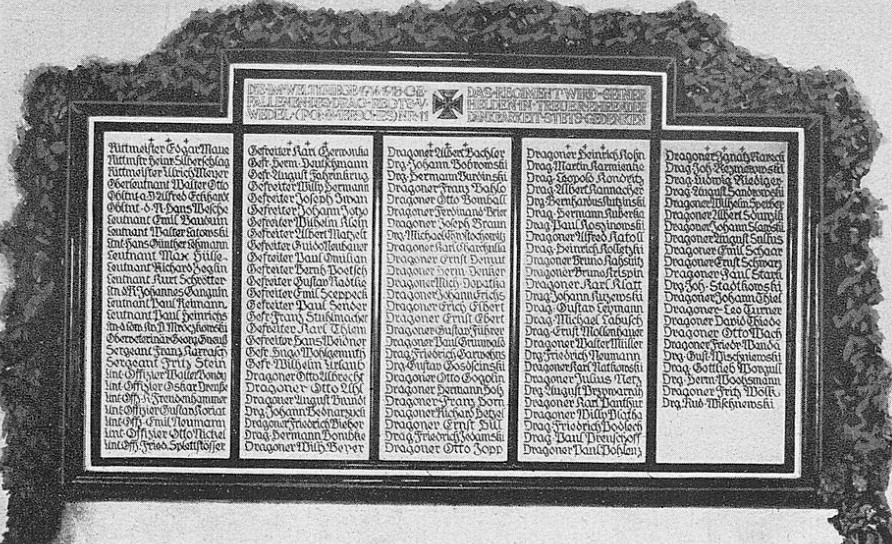 DIE·IM·WELTKRIEGE·1914/1918·GE-
FALLENEN·DES·DRAG·REGTS·V·
WEDEL·(POMMERSCHES)·NR·11
DAS·REGIMENT·WIRD·SEINER
HELDEN·IN·TREUER·EHRENDER
DANKBARKEIT·STETS·GEDENKEN
Rittmeister Edgar Maue
Rittmstr Heinr Silberschlag
Rittmeister Ulrich Meyer
Oberleutnant Walter Otto
Obltnt·a·D·Alfred Eckhardt
Obltnt·d·R·Hans Wesche
Leutnant Emil Baudouin
Leutnant Walter Latowski
Ltnt·Hans Günther Lehmann
Leutnant Max Hülse
Leutnant Richard Beglin
Leutnant Kurt Schrötter
Ltn·d·R·Johannes Ganguin
Leutnant Paul Reimann
Leutnant Paul Heinrichs
Ltn·d·Ldw·Kn·D·Mroczkowski
Oberveterinär Georg Gnauß
Sergeant Franz Karrasch
Sergeant Fritz Stein
Unt·Offizier Walter Bondy
Unt·Offizier Oskar
Unt·Off·K·Freudenhammer
Unt·Offizier Gustav Koriat
Unt·Off·Emil Neumann
Unt·Offizier Otto Nickel
Unt·Off·Fried·Splettstößer
Gefreiter Karl Czerwonka
Gefr·Herm·Deutschmann
Gefr·August Fahrinkrug
Gefreiter Willy Hermann
Gefreiter Joseph Iwan
Gefreiter Johann Jotzo
Gefreiter Wilhelm Klein
Gefreiter Albert Matzeit
Gefreiter Guido Neubauer
Gefreiter Paul Omilian
Gefreiter Bernh Poetsch
Gefreiter Gustav Radtke
Gefreiter Emil Sceppeck
Gefreiter Paul Sender
Gefr·Franz Stuhlmacher
Gefreiter Karl Thiem
Gefreiter Hans Weidner
Gefr·Hugo Wohlgemuth
Gefr Wilhelm Urlaub
Dragoner Otto Albrecht
Dragoner Otto Uhl
Dragoner August Brandt
Drg·Johann Bednarzucki
Dragoner Friedrich Bieber
Drag·Hermann Bombke
Dragoner Wilh Beyer
Dragoner Albert Bachler
Drg·Johann Bobrowski
Drg·Hermann Burdinski
Dragoner Franz Bahlo
Dragoner Otto Bomball
Dragoner Ferdinand Brier
Dragoner Joseph Braun
Drg·Michael Chmilochowitz
Dragoner Karl Charchulla
Dragoner Ernst Demut
Dragoner Herm·Denker
Dragoner Mich·Dopatka
Dragoner Johann Erichs
Dragoner Erich Elbert
Dragoner Ernst Ebert
Dragoner Gustav Führer
Dragoner Paul Grunwald
Drag·Friedrich Garwehns
Drg·Gustav Gosdscinski
Dragoner Otto Gogolin
Dragoner Hermann Holz
Dragoner Franz Horn
Dragoner Richard Hetzel
Dragoner Ernst Hill
Drag·Friedrich Jedamski
Dragoner Otto Jopp
Dragoner Heinrich Kohn
Drag·Martin Karmienke
Drag·Leopold Kondritz
Drag·Albert Kannacher
Drg·Bernhardus Kutzinski
Drag·Hermann Kuberka
Drag·Paul Koszinowski
Dragoner Alfred Katoll
Drag·Heinrich Kosletzki
Dragoner Bruno Kahsnitz
Dragoner Bruno Krispin
Dragoner·Karl Klatt
Drag·Johann Kuzewski
Drag·Gustav Leymann
Drag·Michael Labusch
Drag·Ernst Mollenhauer
Dragoner Walter Müller
Drg·Friedrich Neumann
Dragoner Karl Natkowski
Dragoner Julius Netz
Drg·August Przymarrah
Dragoner Karl Panthur
Dragoner Willy Platha
Drag·Friedrich Podlech
Drag·Paul Prenschoff
Dragoner Paul Pohlenz
Dragoner Ignatz Rarecki
Drag·Joh·Rezmarowski
Drag·Ludwig Riediger
Drag·August Sandrowski
Dragoner Wilhelm Sperber
Dragoner Albert Sdunzik
Dragoner Johann Slomski
Dragoner August Sallus
Dragoner Emil Schaar
Dragoner Ernst Schwarz
Dragoner Paul Stark
Drg·Joh·Stadtkowski
Dragoner Johann Thiel
Dragoner·Leo Turner
Dragoner David Thiede
Dragoner Otto Wach
Dragoner Friedr Wanda
Drg·Gust·Wischniewski
Drag·Gottlieb Worgull
Drg·Herm·Woelzmann
Dragoner Fritz Wölk
Drg·Rud·Wischnewski